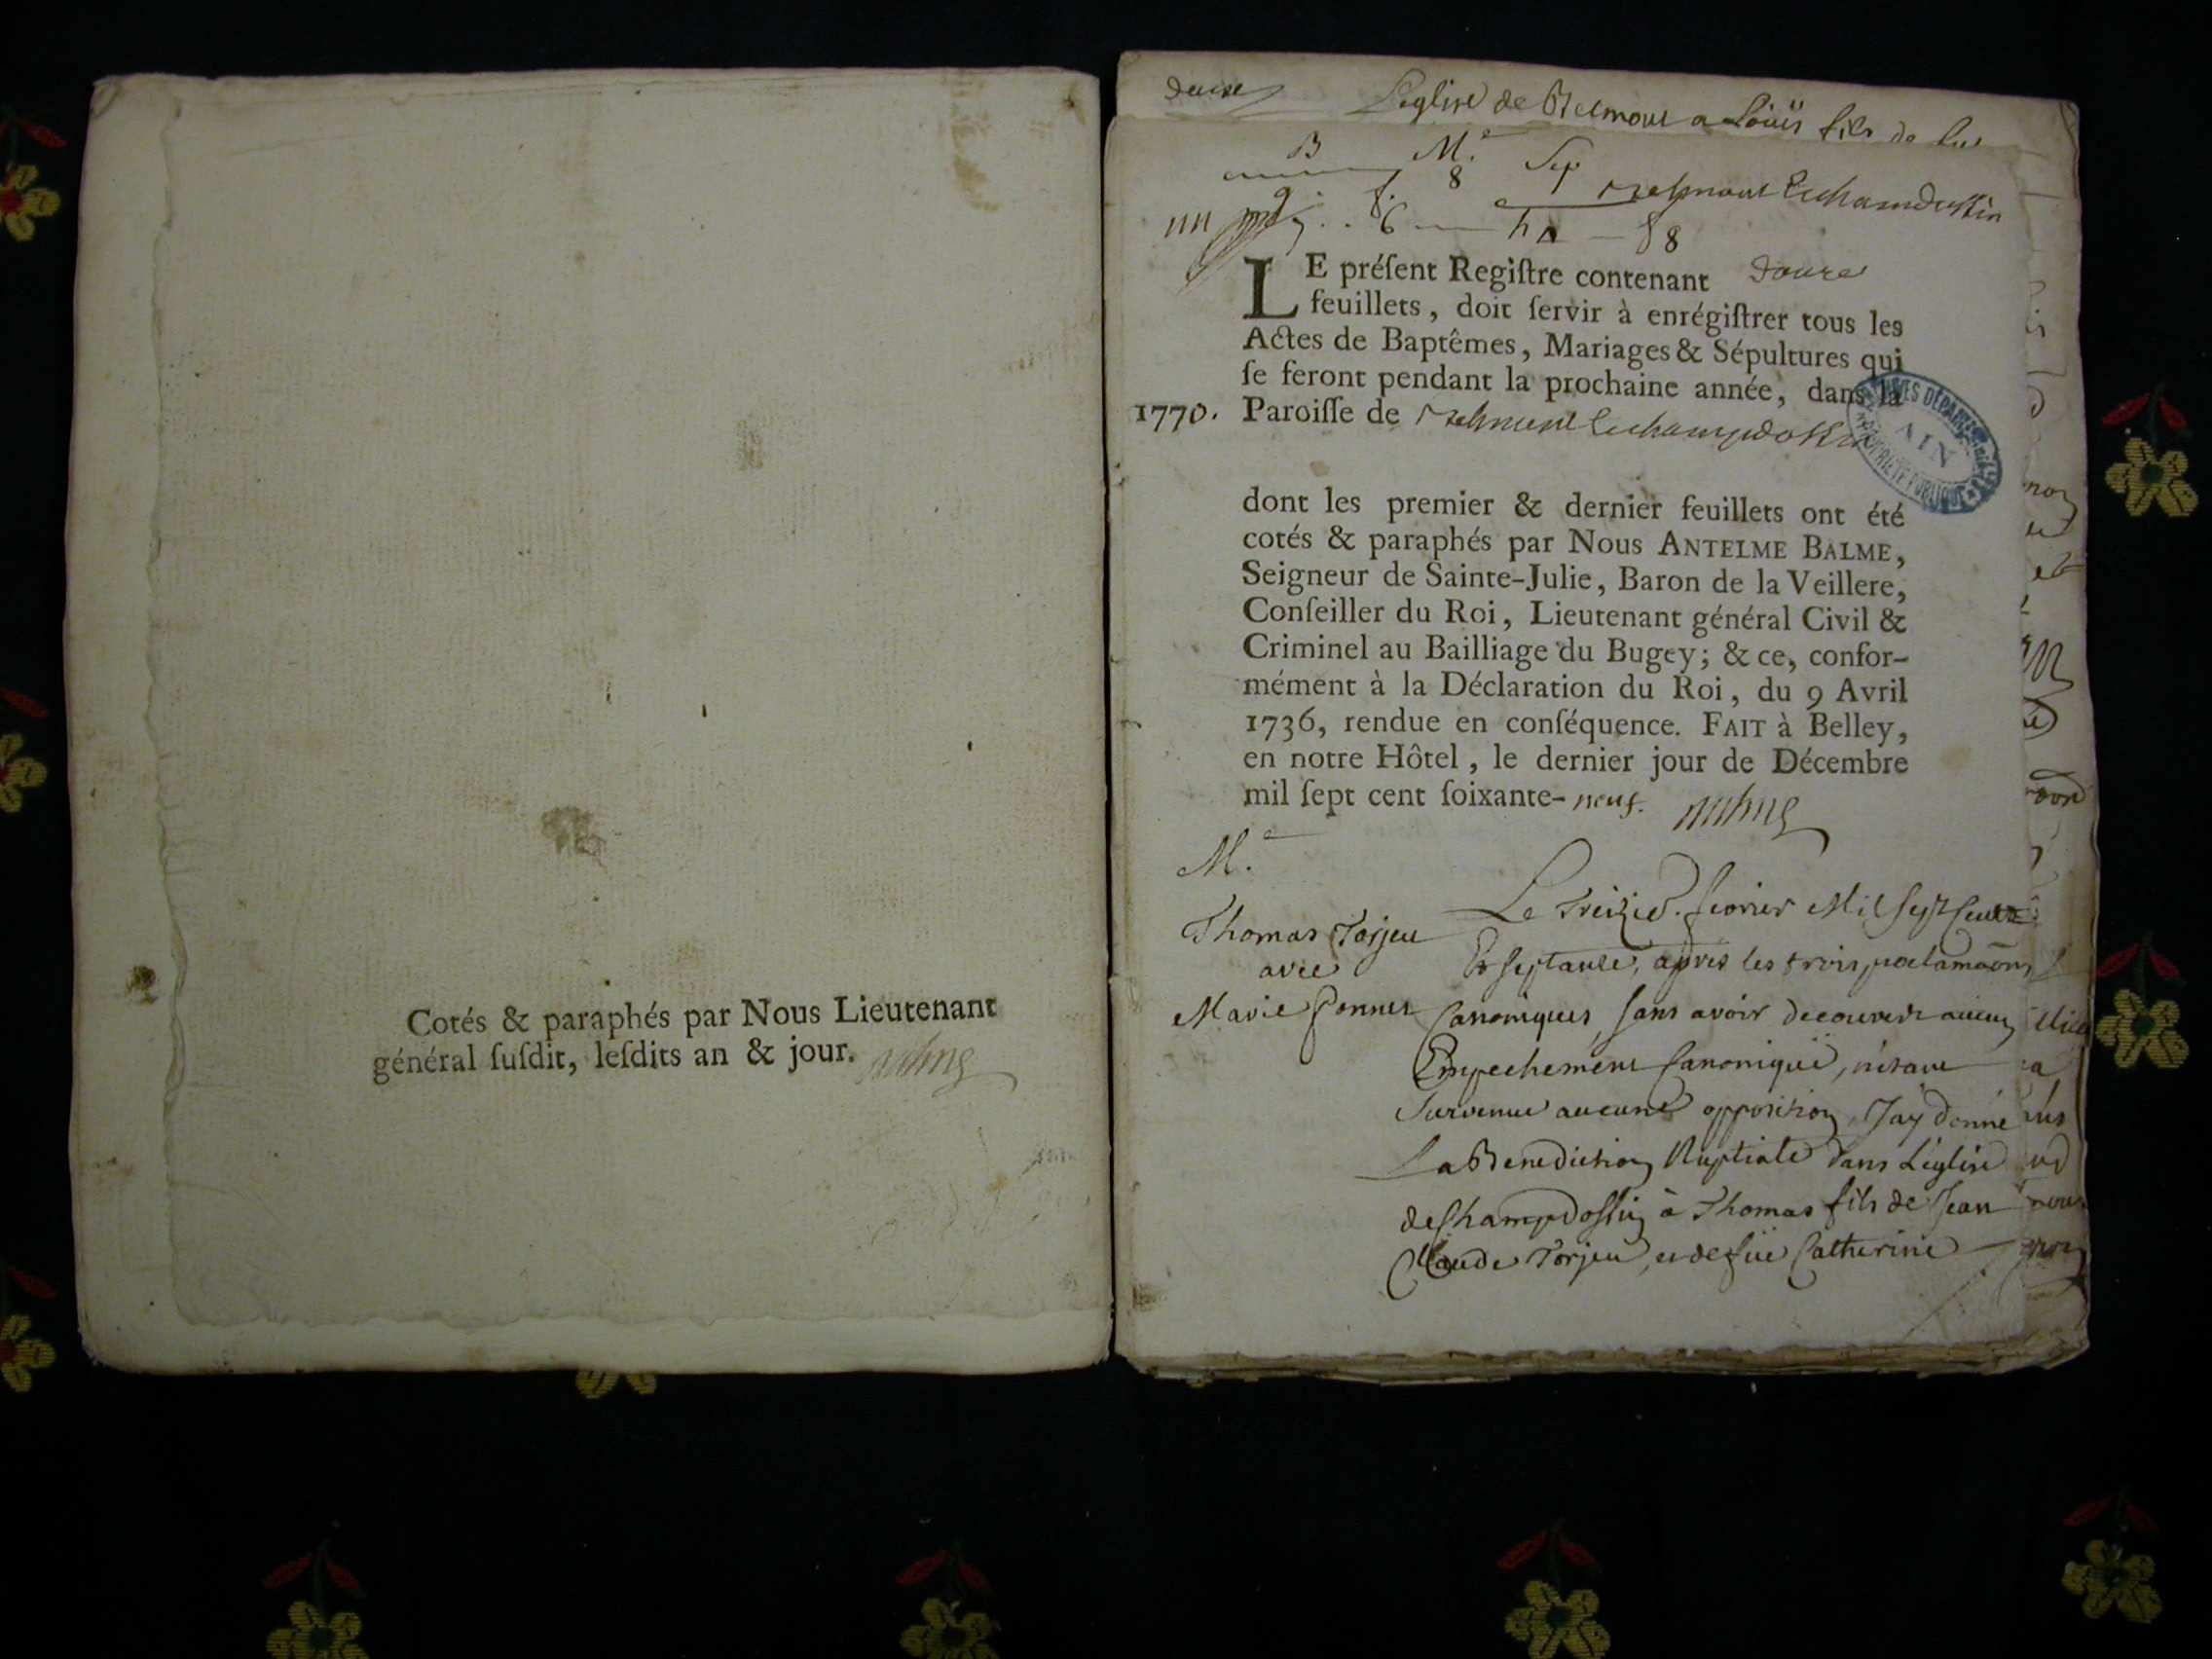 Cotés & paraphés par Nous Lieutenant
général ſuſdit, leſdits an & jour.
L'eglise de Belmont a Loüis fils de
B M.e Sep
9 8
6
8
LE préſent Regiſtre contenant douze
feuillets, doit ſervir à enrégiſtrer tous les
Actes de Baptêmes, Mariages & Sépultures qui
ſe feront pendant la prochaine année, dans la
1770. Paroiſſe de Belmont
ARCHIVES DÉPARTEMENTALES
AIN
PROPRIÉTÉ PUBLIQUE
dont les premier & dernier feuillets ont été
cotés & paraphés par Nous ANTELME BALME,
Seigneur de Sainte-Julie, Baron de la Veillere,
Conſeiller du Roi, Lieutenant général Civil &
Criminel au Bailliage du Bugey; & ce, confor-
mément à la Déclaration du Roi, du 9 Avril
1736, rendue en conſéquence. FAIT à Belley,
en notre Hôtel, le dernier jour de Décembre
mil ſept cent ſoixante-neuf.
M.e
Thomas Torjeu
avec
Marie Ponnet
Le Treize. fevrier Mil sept cent
Et septante, apres les trois proclamaõns
Canoniques, sans avoir decouvert aucun
Empechement Canonique, n'etant
survenue aucune opposition, J'ay donné
La Benediction Nuptiale dans L'eglise
de Champdossin à Thomas fils de Jean
Claude Torjeu, et de fue Catherine